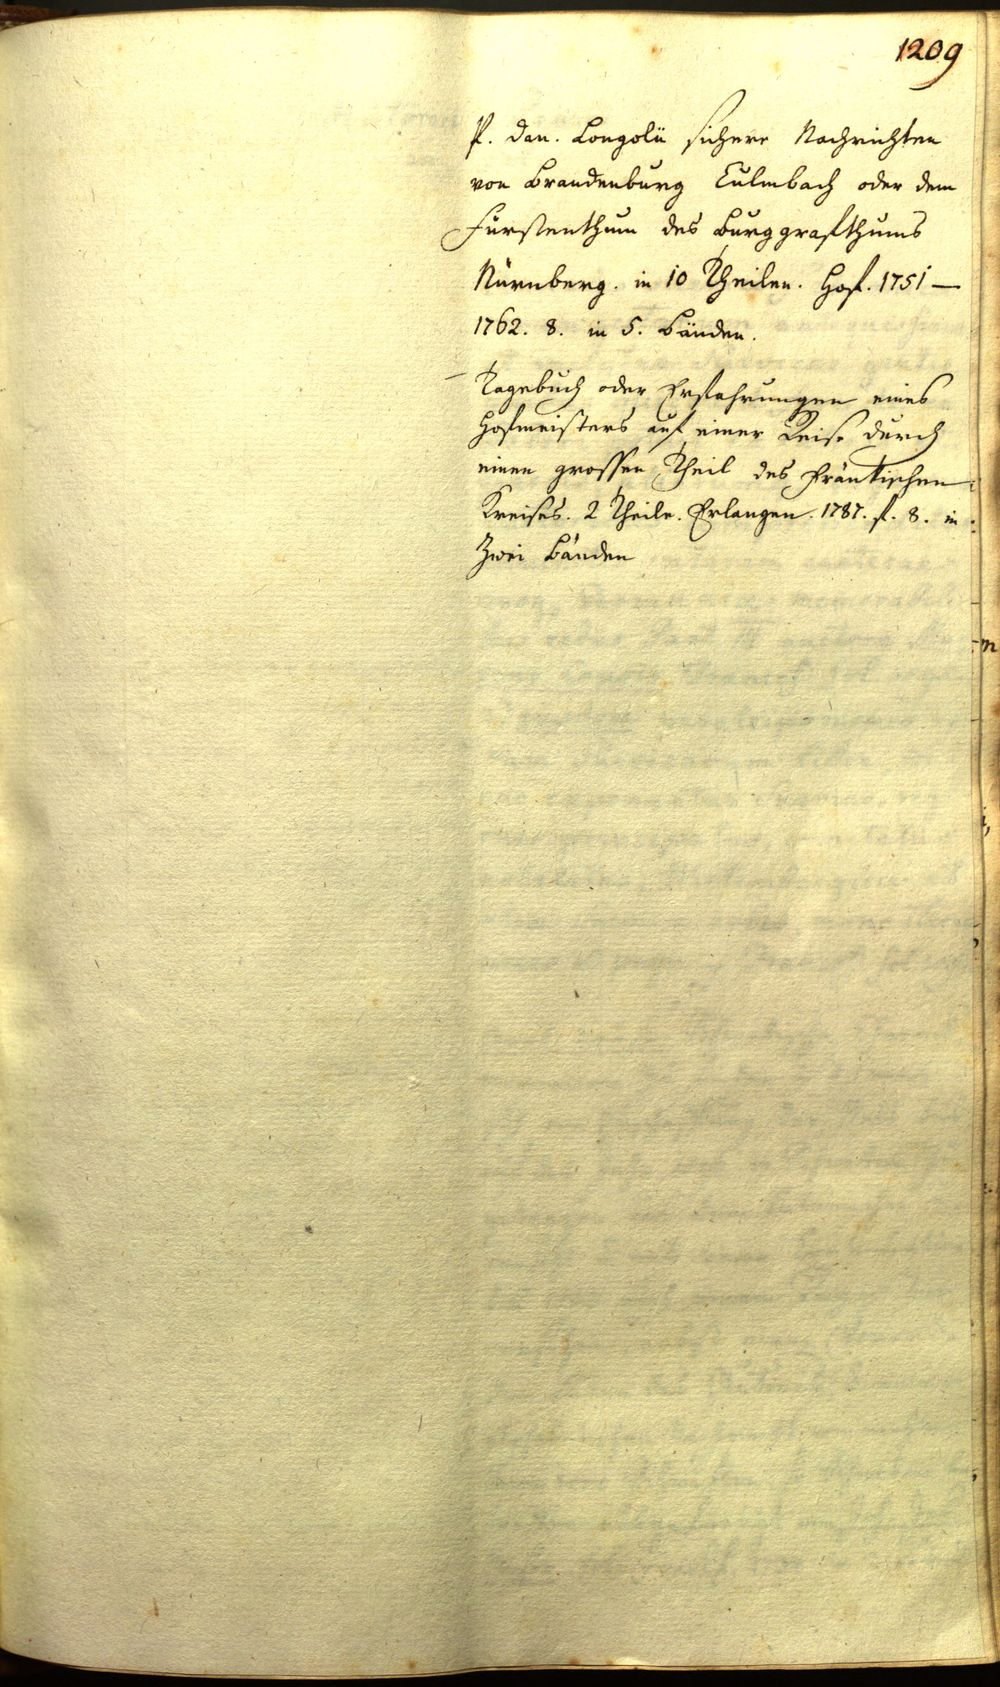 1209
P. Dan. Longolii sichere Nachrichten
von Brandenburg Culmbach oder dem
Fürstenthum des Burggrafthums
Nürnberg. in 10 Theilen. Hof. 1751 —
1762. 8. in 5. Bänden.
– Tagebuch oder Erfahrungen eines
Hofmeisters auf einer Reise durch
einen grossen Theil des Fränkischen
Kreises. 2 Theile. Erlangen. 1787. f. 8. in
Zwei Bänden